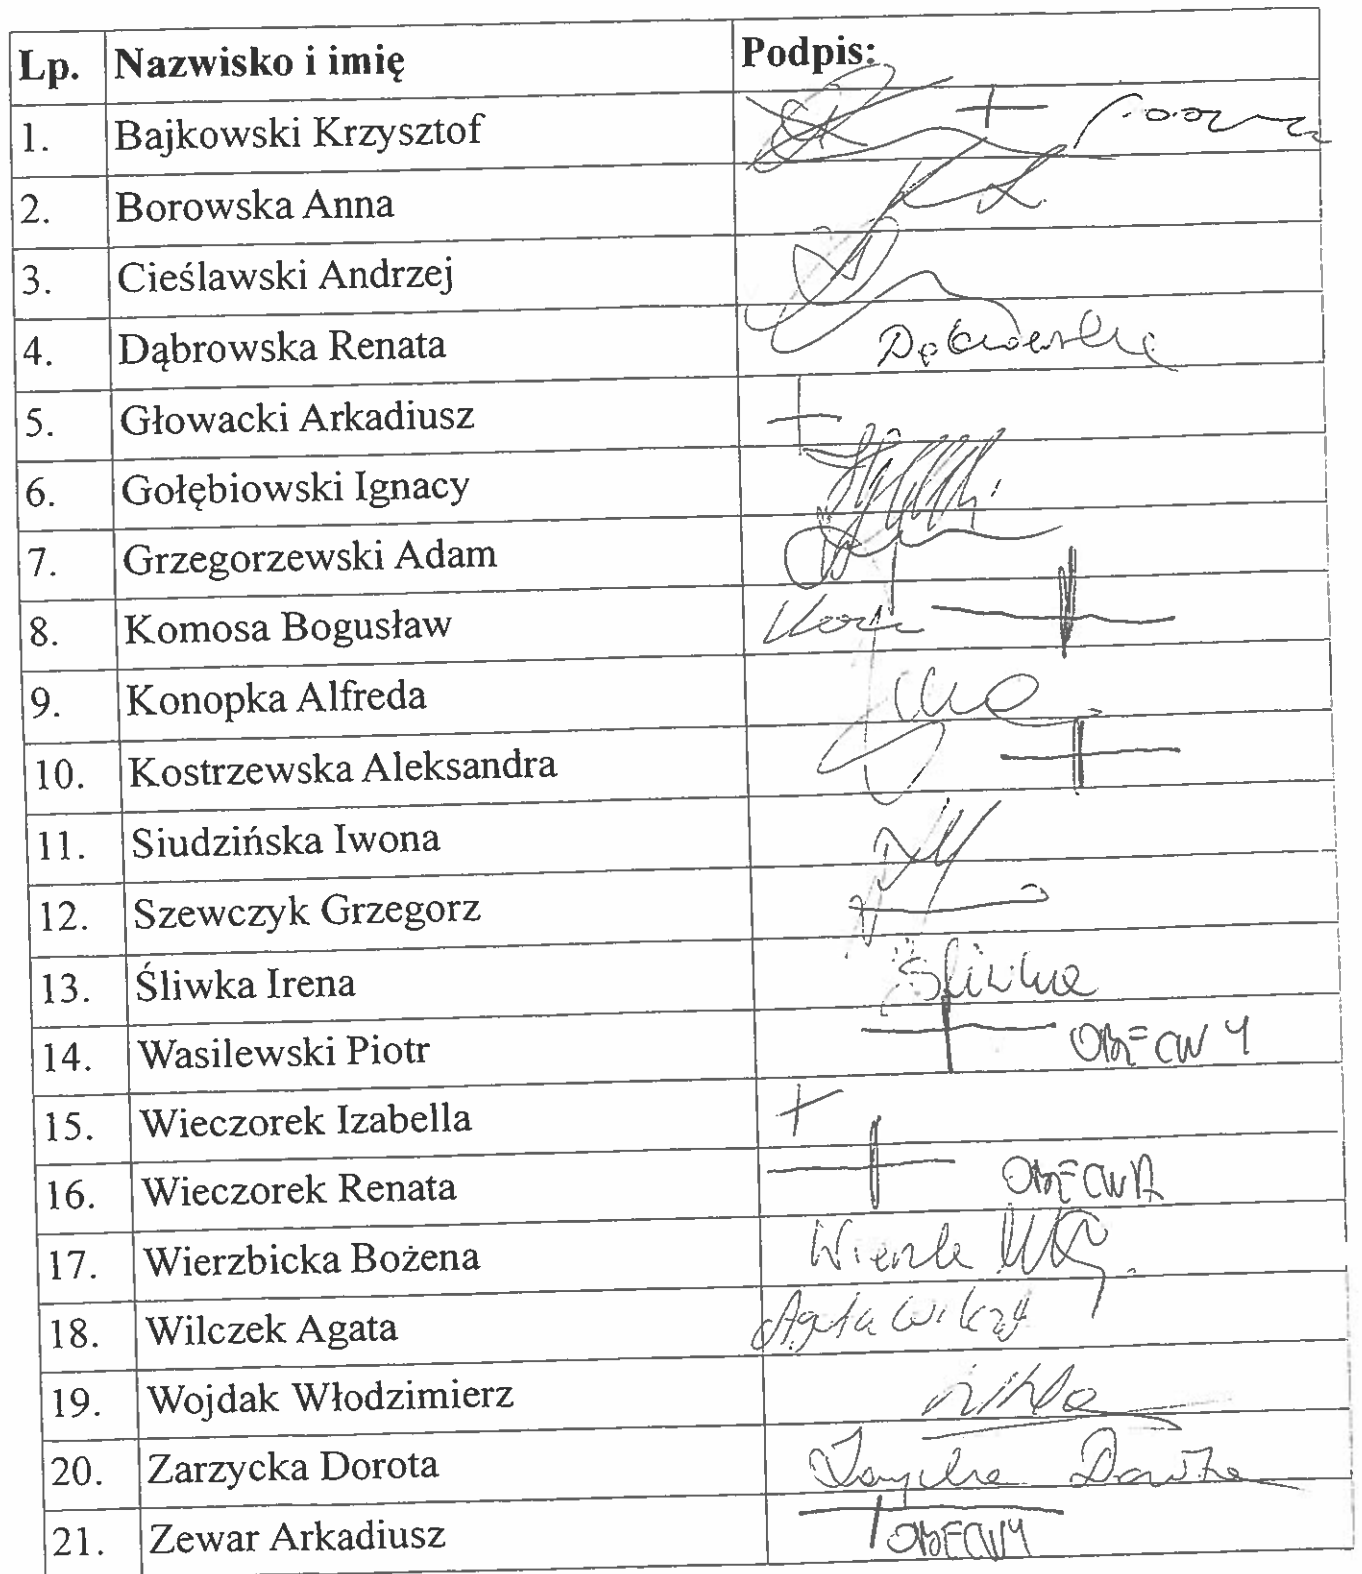 Lp. Nazwisko i imię Podpis:
1. Bajkowski Krzysztof +
2. Borowska Anna
3. Cieślawski Andrzej
4. Dąbrowska Renata Dąbrowska
5. Głowacki Arkadiusz +
6. Gołębiowski Ignacy
7. Grzegorzewski Adam
8. Komosa Bogusław +
9. Konopka Alfreda
10. Kostrzewska Aleksandra +
11. Siudzińska Iwona
12. Szewczyk Grzegorz
13. Śliwka Irena Śliwka
14. Wasilewski Piotr + OBECNY
15. Wieczorek Izabella +
16. Wieczorek Renata + OBECNA
17. Wierzbicka Bożena
18. Wilczek Agata Agata Wilczek
19. Wojdak Włodzimierz
20. Zarzycka Dorota Zarzycka Dorota
21. Zewar Arkadiusz + OBECNY